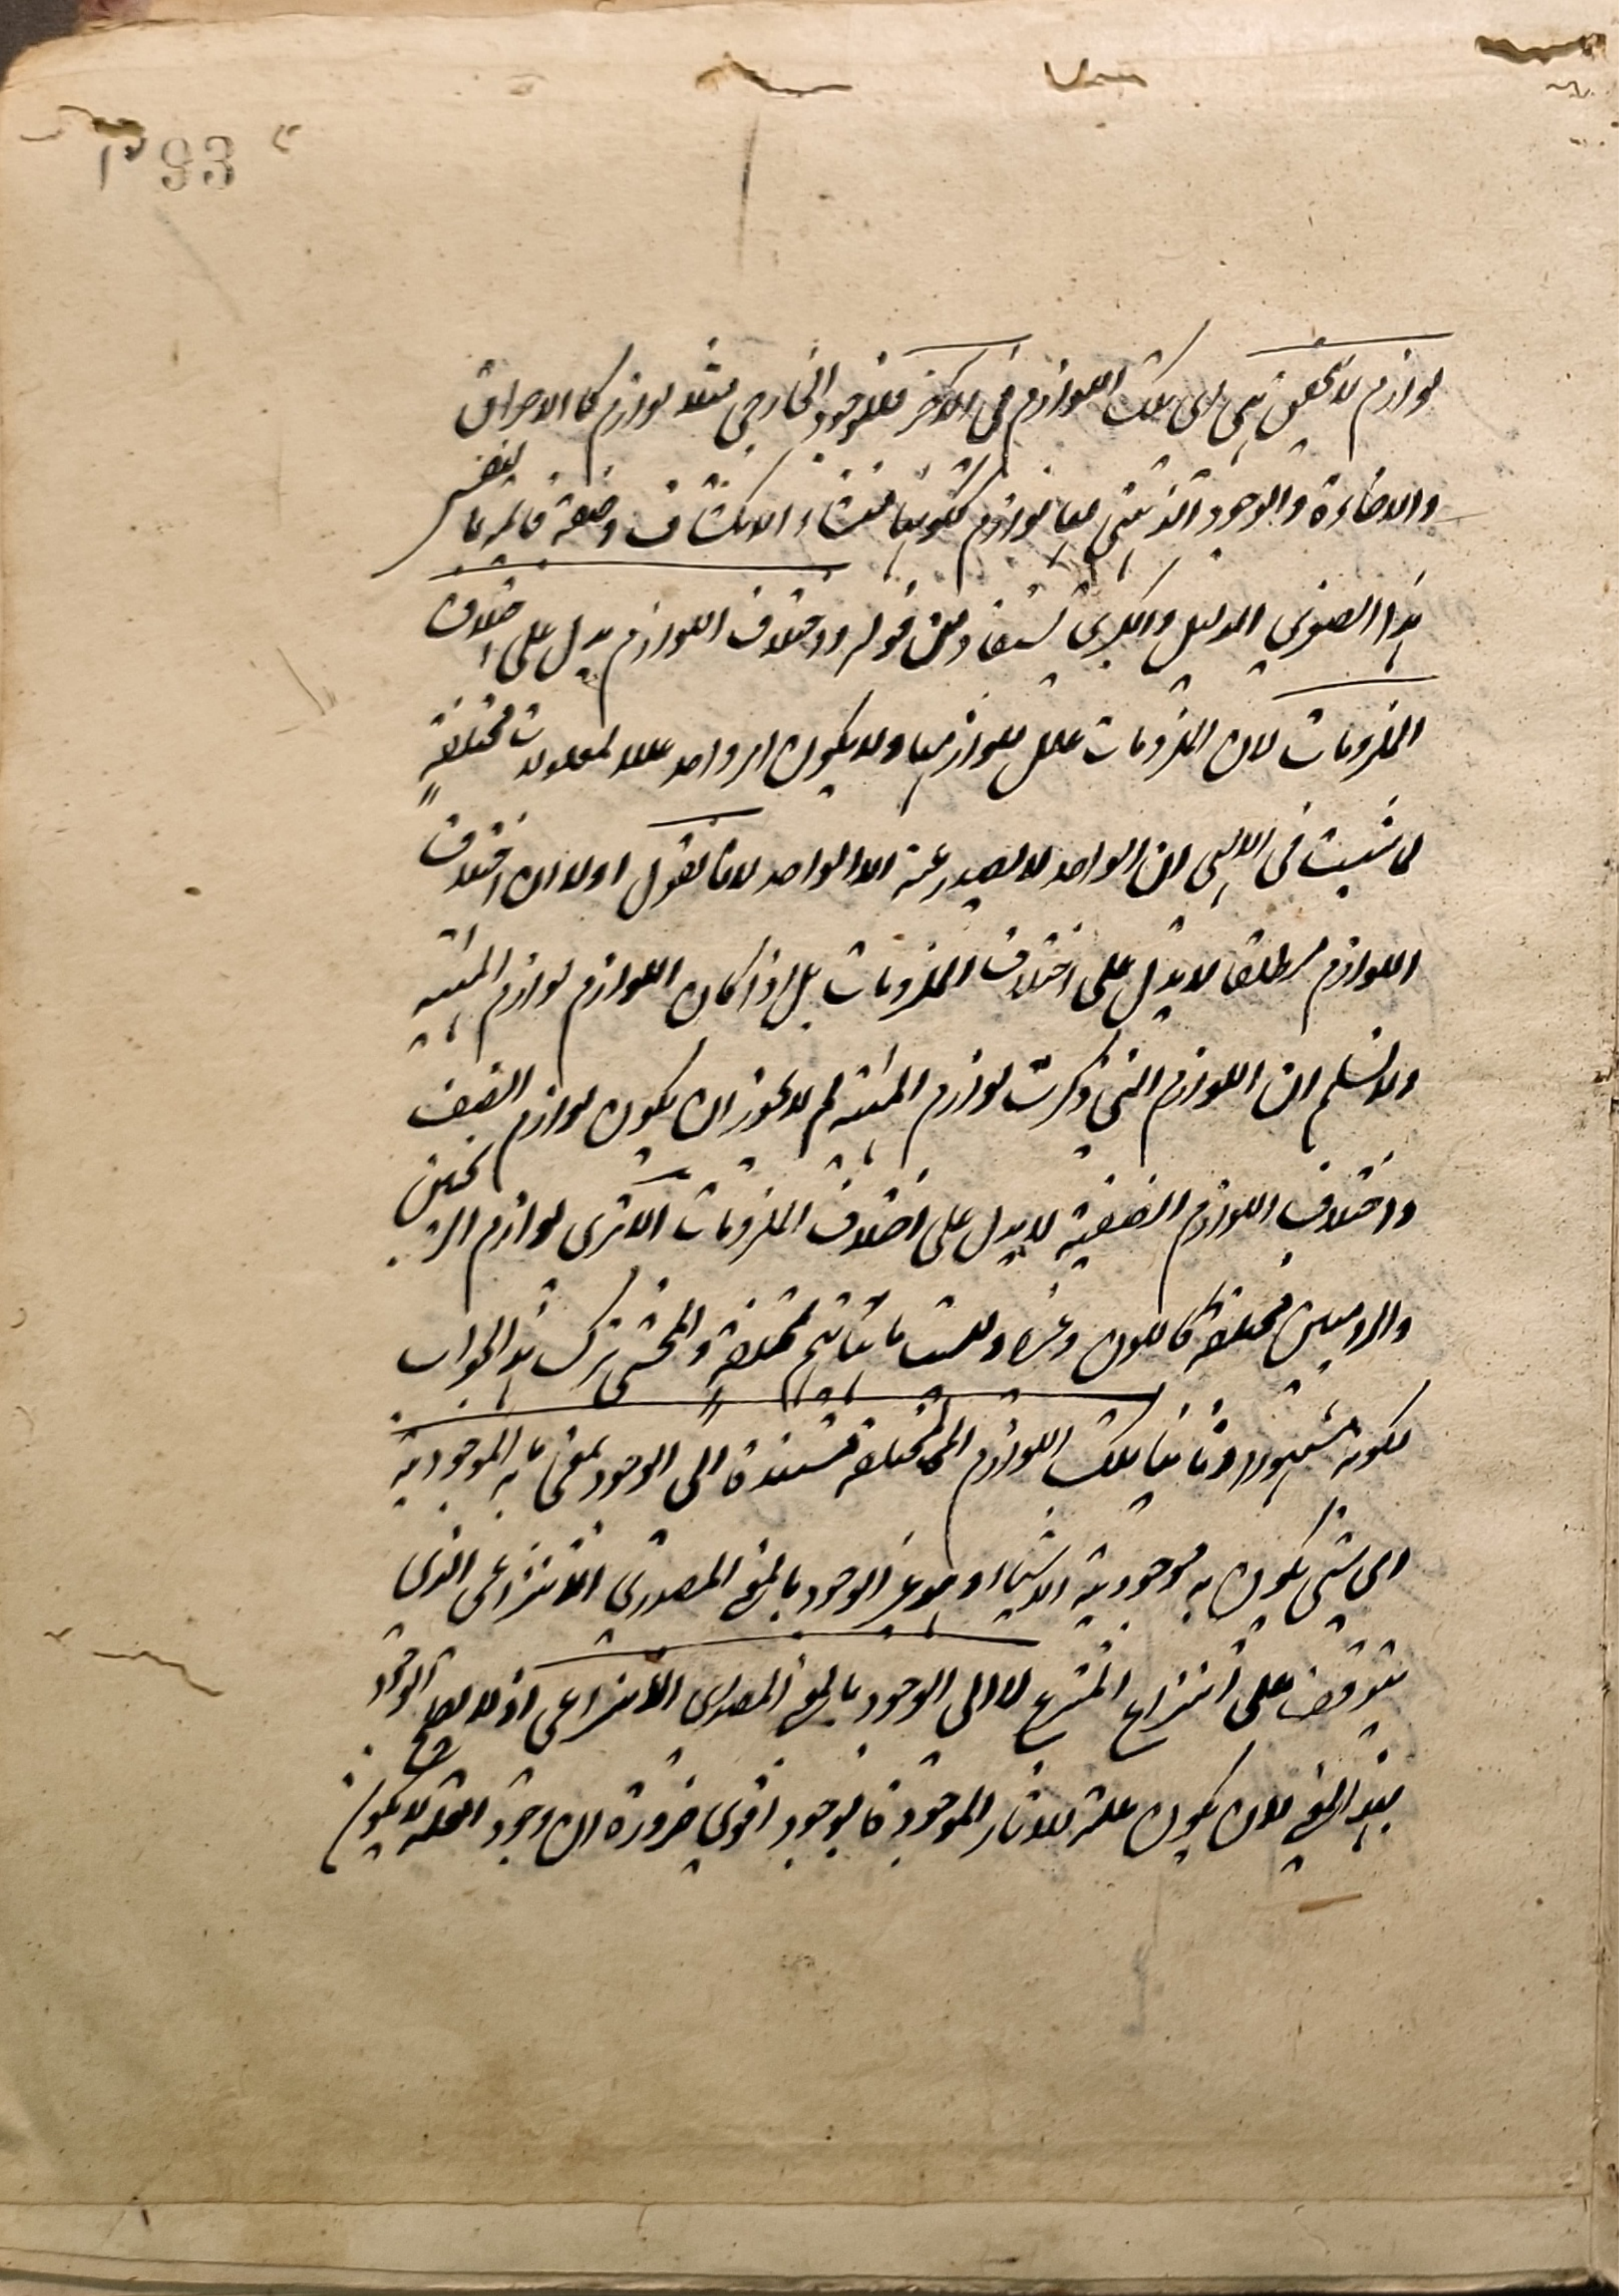 93
لوازم لا تتحقق هى اى تلك اللوازم فى الآخر فللوجود الخارجى مثلا لوازم كالاحراق
والاضاءة والوجود الذهنى معها لوازم ككونها منشاء الانكشاف وصفة قائمة بالنفس
هذا الصغرى الدليل والكبرى تستفاد من قوله واختلاف اللوازم يدل على اختلاف
الملزومات لان الملزومات علل للوازمها ولا يكون امر واحد علة لمعلولات مختلفة
لما ثبت فى الالهى ان الواحد لا يصدر عنه الا الواحد لانا نقول اولا ان اختلاف
اللوازم مطلقا لا يدل على اختلاف الملزومات بل اذا كان اللوازم لوازم المهية
ولا نسلم ان اللوازم التى ذكرت لوازم المهية لم لا يجوز ان يكون لوازم الصنف
واختلاف اللوازم الصنفية لا يدل على اختلاف الملزومات الا ترى لوازم الزنجيين
والروميين مختلفة كاللون وغيره وليست ماهياتهم مختلفة والمحشى ترك هذا الجواب
لكونه مشهورا وثانيا تلك اللوازم المختلفة مستندة الى الوجود بمعنى ما به الموجودية
اى شئ يكون به موجودية الاشياء وهو غير الوجود بالمعنى المصدرى الانتزاعى الذى
يتوقف على انتزاع المنتزع لا الى الوجود بالمعنى المصدرى الانتزاعى اذ لا يصلح الوجود
بهذا المعنى لان يكون علة للآثار الموجودة بوجود اقوى ضرورة ان وجود العلة لا يكون